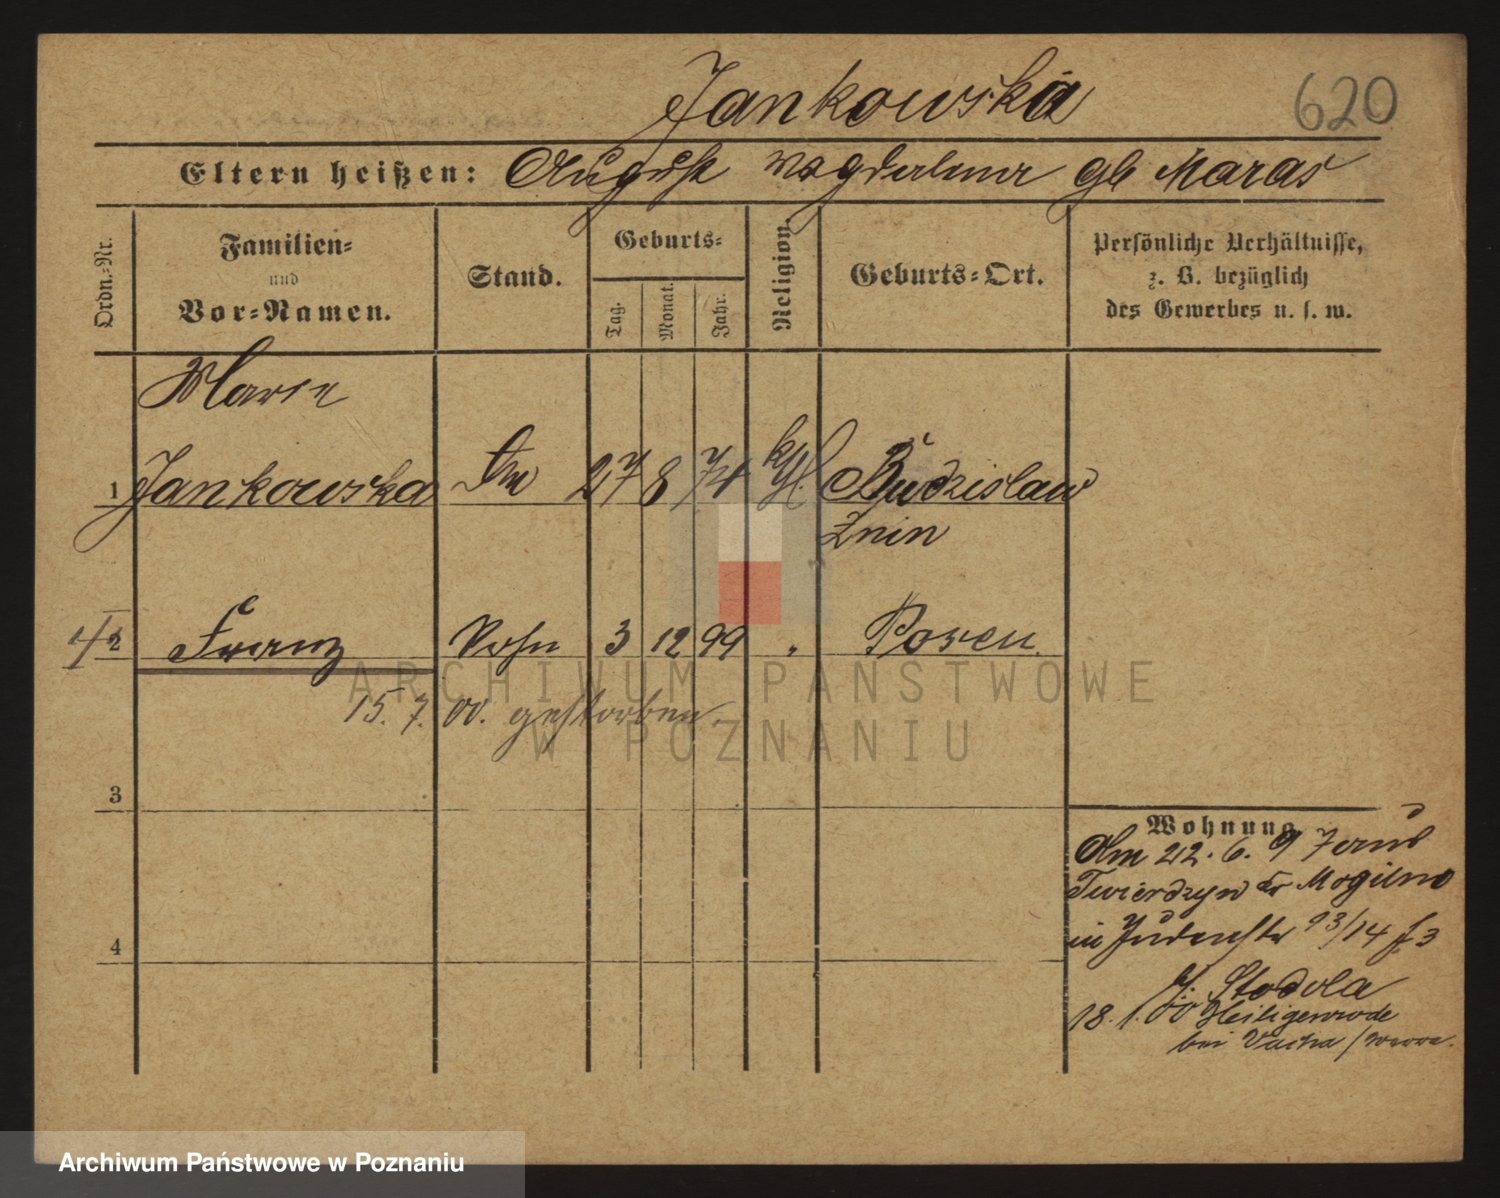 Jankowska
620
Eltern heißen: August Magdalena gb Maras
Ordn.-Nr.
Familien-
und
Vor-Namen.
Stand.
Geburts-
Tag.
Monat.
Jahr.
Religion.
Geburts-Ort.
Persönliche Verhältnisse,
z. B. bezüglich
des Gewerbes u. s. w.
Marie
1 Jankowska 27 8 74 kth. Budzislaw
Znin
2 Franz Sohn 3 12 99 " Posen.
15. 7. 00. gestorben.
3
4
Wohnung
Am 22. 6. 9
Twierdzyn Kr Mogilno
in 13/14
b/ Stodola
18. 1. 00 Heiligenrode
bei Vacha
ARCHIWUM PAŃSTWOWE
W POZNANIU
Archiwum Państwowe w Poznaniu